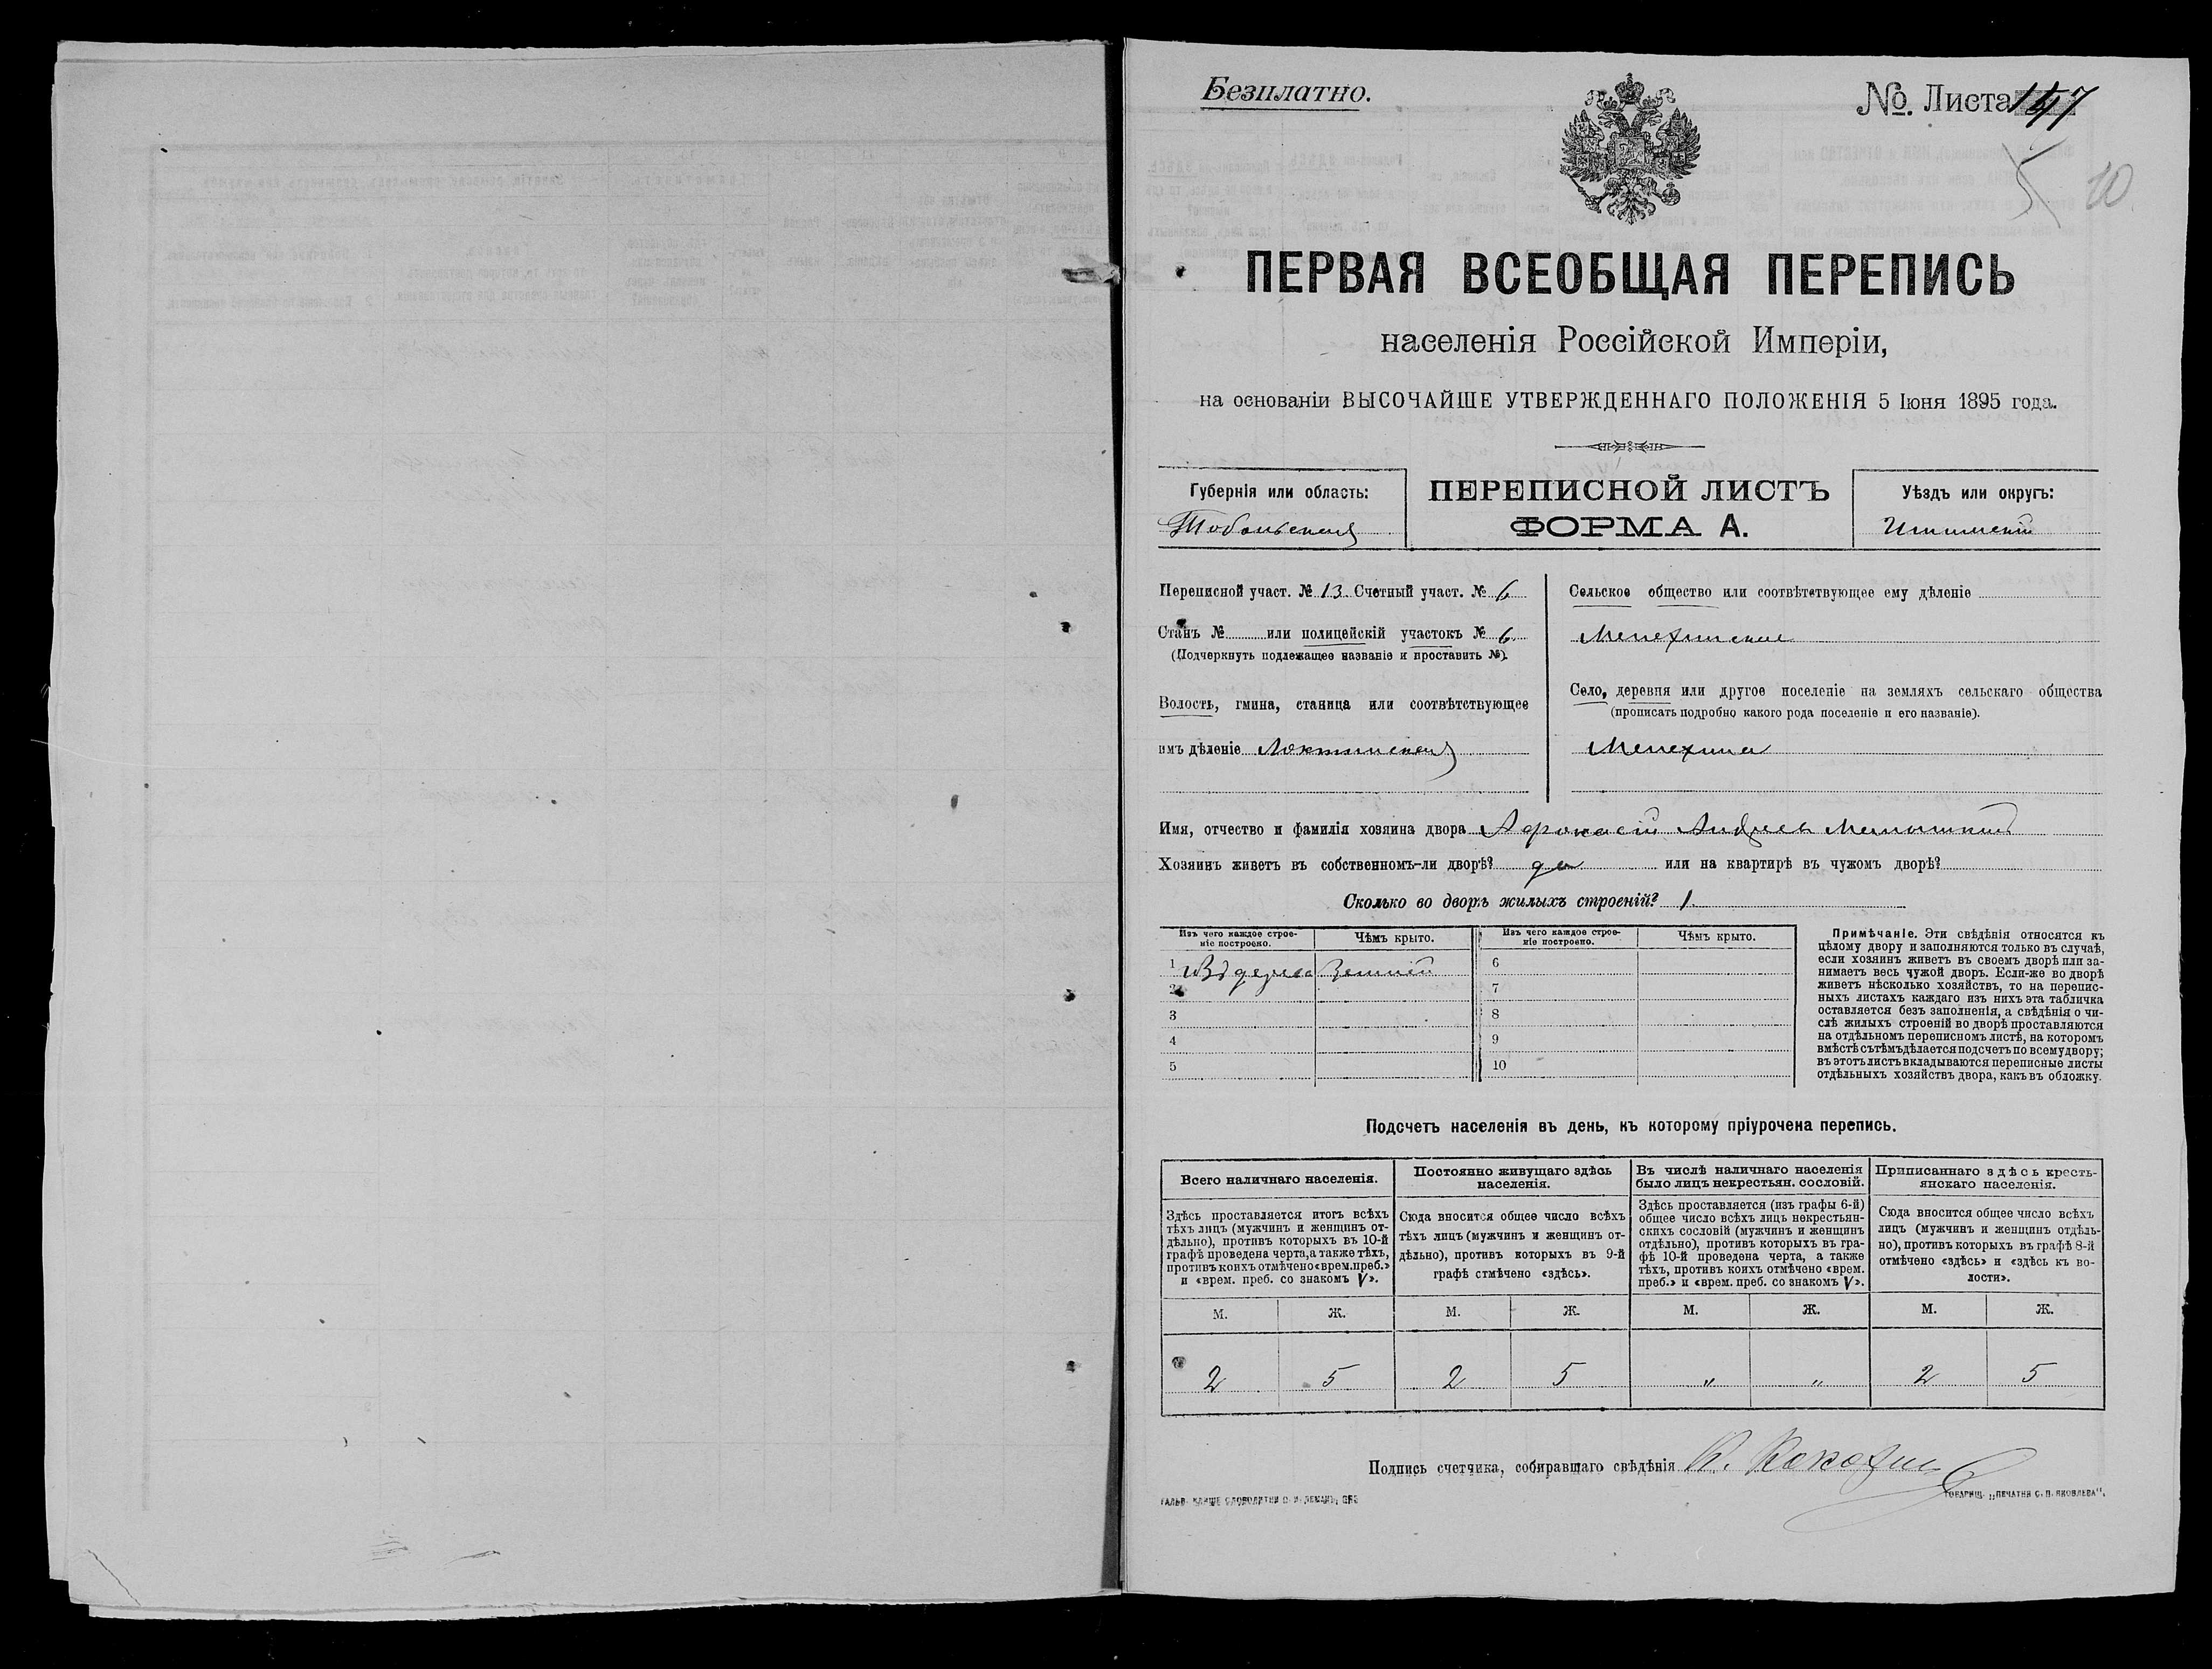 Безплатно.
№. Листа 147
10
ПЕРВАЯ ВСЕОБЩАЯ ПЕРЕПИСЬ
населенія Россійской Имперіи,
на основаніи ВЫСОЧАЙШЕ УТВЕРЖДЕННАГО ПОЛОЖЕНІЯ 5 Іюня 1895 года.
Губернія или область:
Тобольская
ПЕРЕПИСНОЙ ЛИСТЪ
ФОРМА А.
Уѣздъ или округъ:
Ишимскій
Переписной участ. № 13 Счетный участ. № 6
Станъ № или полицейскій участокъ № 6
(Подчеркнуть подлежащее названіе и проставить №).
Волость, гмина, станица или соотвѣтствующее
имъ дѣленіе Локтинская
Сельское общество или соотвѣтствующее ему дѣленіе
Мепехинское
Село, деревня или другое поселеніе на земляхъ сельскаго общества
(прописать подробно какого рода поселеніе и его названіе).
Мепехина
Имя, отчество и фамилія хозяина двора Афонасій Андреев
Хозяинъ живетъ въ собственномъ-ли дворѣ? да или на квартирѣ въ чужомъ дворѣ?
Сколько во дворѣ жилыхъ строеній? 1
Изъ чего каждое строе-
ніе построено.
Чѣмъ крыто.
Изъ чего каждое строе-
ніе построено.
Чѣмъ крыто.
1 Изъ дерева Землей
2
3
4
5
6
7
8
9
10
Примѣчаніе. Эти свѣдѣнія относятся къ
цѣлому двору и заполняются только въ случаѣ,
если хозяинъ живетъ въ своемъ дворѣ или за-
нимаетъ весь чужой дворъ. Если-же во дворѣ
живетъ нѣсколько хозяйствъ, то на перепис-
ныхъ листахъ каждаго изъ нихъ эта табличка
оставляется безъ заполненія, а свѣдѣнія о чи-
слѣ жилыхъ строеній во дворѣ проставляются
на отдѣльномъ переписномъ листѣ, на которомъ
вмѣстѣ съ тѣмъ дѣлается подсчетъ по всему двору;
въ этотъ листъ вкладываются переписные листы
отдѣльныхъ хозяйствъ двора, какъ въ обложку.
Подсчетъ населенія въ день, къ которому пріурочена перепись.
Всего наличнаго населенія.
Здѣсь проставляется итогъ всѣхъ
тѣхъ лицъ (мужчинъ и женщинъ от-
дѣльно), противъ которыхъ въ 10-й
графѣ проведена черта, а также тѣхъ,
противъ коихъ отмѣчено «врем. преб.»
и «врем. преб. со знакомъ V».
Постоянно живущаго здѣсь
населенія.
Сюда вносится общее число всѣхъ
тѣхъ лицъ (мужчинъ и женщинъ от-
дѣльно), противъ которыхъ въ 9-й
графѣ отмѣчено «здѣсь».
Въ числѣ наличнаго населенія
было лицъ некрестьян. сословій.
Здѣсь проставляется (изъ графы 6-й)
общее число всѣхъ лицъ некрестьян-
скихъ сословій (мужчинъ и женщинъ
отдѣльно), противъ которыхъ въ гра-
фѣ 10-й проведена черта, а также
тѣхъ, противъ коихъ отмѣчено «врем.
преб.» и «врем. преб. со знакомъ V».
Приписаннаго здѣсь кресть-
янскаго населенія.
Сюда вносится общее число всѣхъ
лицъ (мужчинъ и женщинъ отдѣль-
но), противъ которыхъ въ графѣ 8-й
отмѣчено «здѣсь» и «здѣсь къ во-
лости».
М. Ж. М. Ж. М. Ж. М. Ж.
2 5 2 5 " " 2 5
Подпись счетчика, собиравшаго свѣдѣнія
ТОВАРИЩ. „ПЕЧАТНЯ С. П. ЯКОВЛЕВА“.